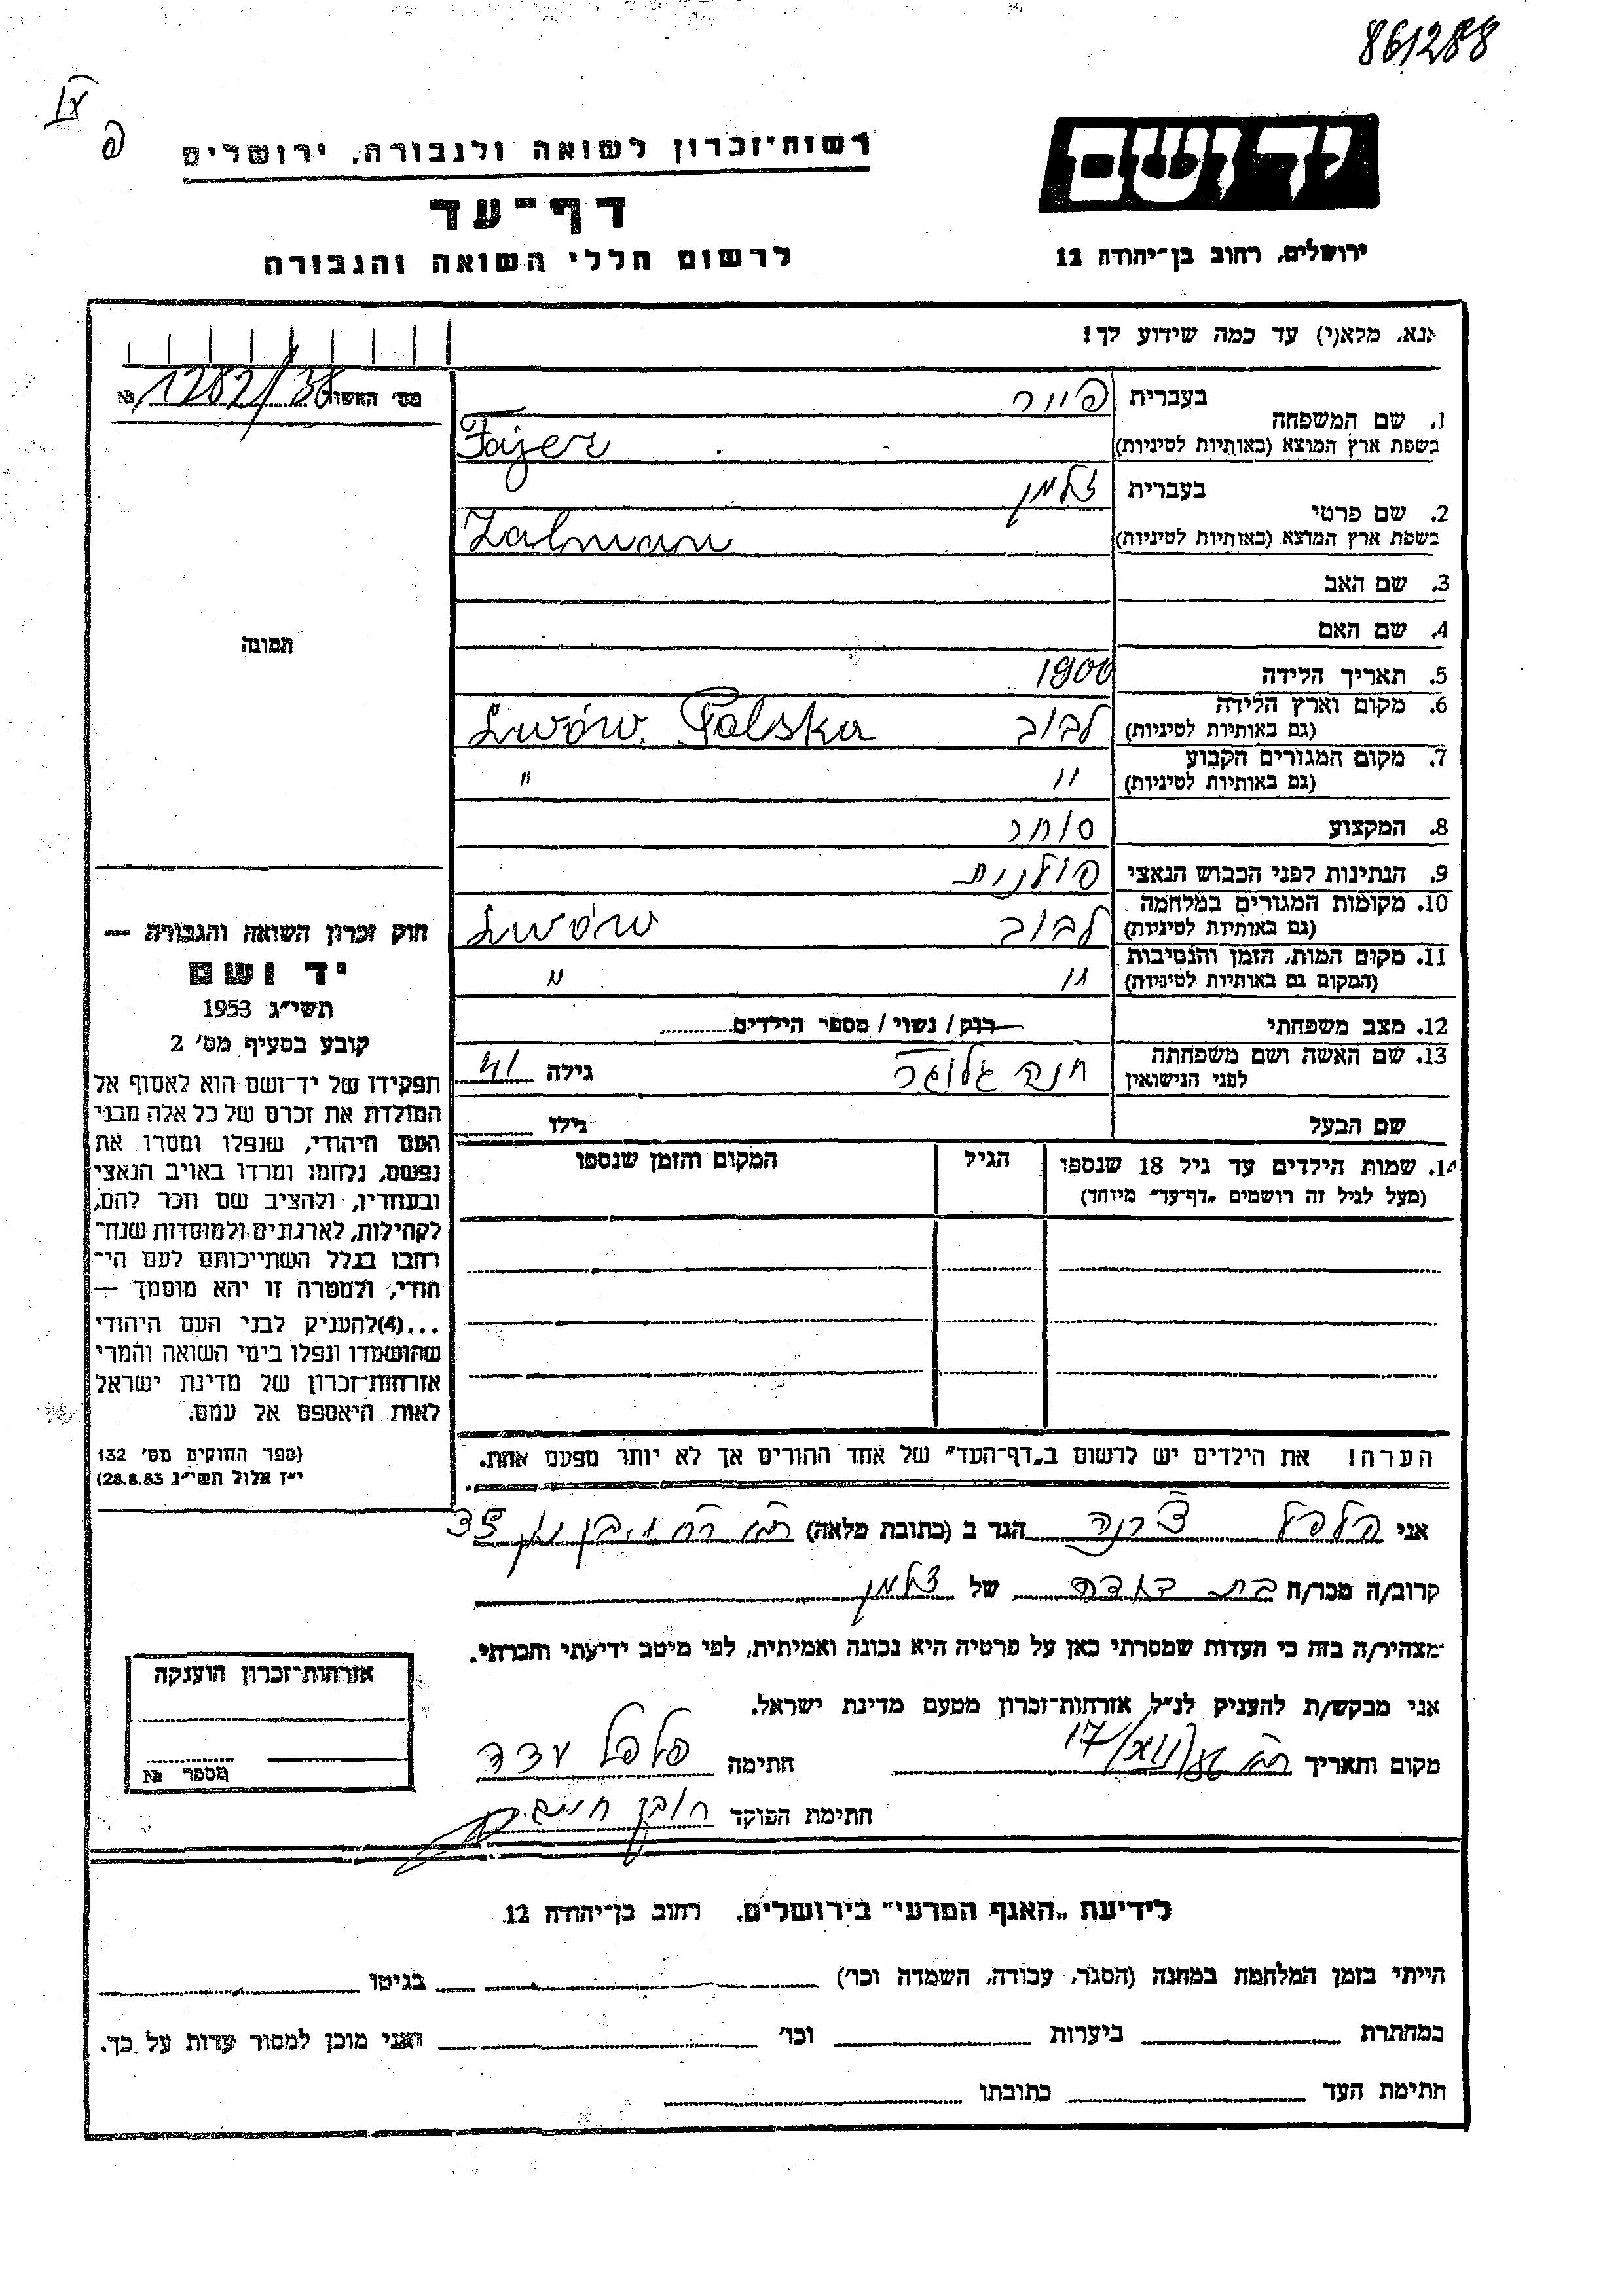 861288
יד ושם
רשות־זכרון לשואה ולגבורה, ירושלים
דף־עד
לרשום חללי השואה והגבורה
ירושלים, רחוב בן־יהודה 12
פ
אנא, מלא(י) עד כמה שידוע לך!
מס׳ האשור 1282/38 №
1. שם המשפחה
בעברית פייר
בשפת ארץ המוצא (באותיות לטיניות) Fajer
2. שם פרטי
בעברית זלמן
בשפת ארץ המוצא (באותיות לטיניות) Zalman
3. שם האב
4. שם האם
5. תאריך הלידה 1900
6. מקום וארץ הלידה
(גם באותיות לטיניות) לבוב Lwów. Polska
7. מקום המגורים הקבוע
(גם באותיות לטיניות) " "
8. המקצוע סוחר
9. הנתינות לפני הכבוש הנאצי פולנית
10. מקומות המגורים במלחמה
(גם באותיות לטיניות) לבוב Lwów
11. מקום המות, הזמן והנסיבות
(המקום גם באותיות לטיניות) " "
12. מצב משפחתי רווק/ נשוי/ מספר הילדים
13. שם האשה ושם משפחתה
לפני הנישואין חנה גילה 41
שם הבעל גילו
14. שמות הילדים עד גיל 18 שנספו
(מעל לגיל זה רושמים „דף־עד״ מיוחד)
הגיל
המקום והזמן שנספו
הערה! את הילדים יש לרשום ב„דף־העד״ של אחד ההורים אך לא יותר מפעם אחת.
תמונה
חוק זכרון השואה והגבורה —
יד ושם
תשי״ג 1953
קובע בסעיף מס׳ 2
תפקידו של יד־ושם הוא לאסוף אל
המולדת את זכרם של כל אלה מבני
העם היהודי, שנפלו ומסרו את
נפשם, נלחמו ומרדו באויב הנאצי
ובעוזריו, ולהציב שם וזכר להם,
לקהילות, לארגונים ולמוסדות שנח־
רבו בגלל השתייכותם לעם הי־
הודי, ולמטרה זו יהא מוסמך —
...(4)להעניק לבני העם היהודי
שהושמדו ונפלו בימי השואה והמרי
אזרחות־זכרון של מדינת ישראל
לאות היאספם אל עמם.
(ספר החוקים מס׳ 132
י״ז אלול תשי״ג 28.8.53)
אני פלפל הגר ב (כתובת מלאה) 35
קרוב/ה מכר/ה בת דודה של זלמן
מצהיר/ה בזה כי העדות שמסרתי כאן על פרטיה היא נכונה ואמיתית, לפי מיטב ידיעתי והכרתי.
אני מבקש/ת להעניק לנ״ל אזרחות־זכרון מטעם מדינת ישראל.
מקום ותאריך חתימה פלפל
חתימת הפוקד
אזרחות־זכרון הוענקה
מספר №
לידיעת „האגף המדעי״ בירושלים, רחוב בן־יהודה 12
הייתי בזמן המלחמה במחנה (הסגר, עבודה, השמדה וכו׳) בגיטו
במחתרת ביערות וכו׳ ואני מוכן למסור עדות על כך.
חתימת העד כתובתו